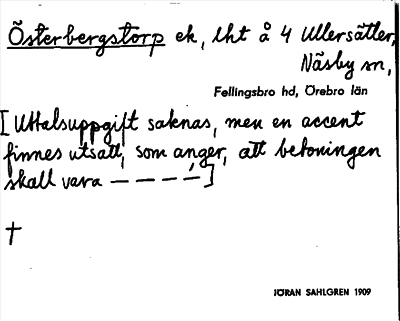 Österbergstorp ek, lht å 4 Ullersätter,
Näsby sn,
Fellingsbro hd, Örebro län
[Uttalsuppgift saknas, men en accent
finnes utsatt, som anger, att betoningen
skall vara – – – –́]
†
JÖRAN SAHLGREN 1909